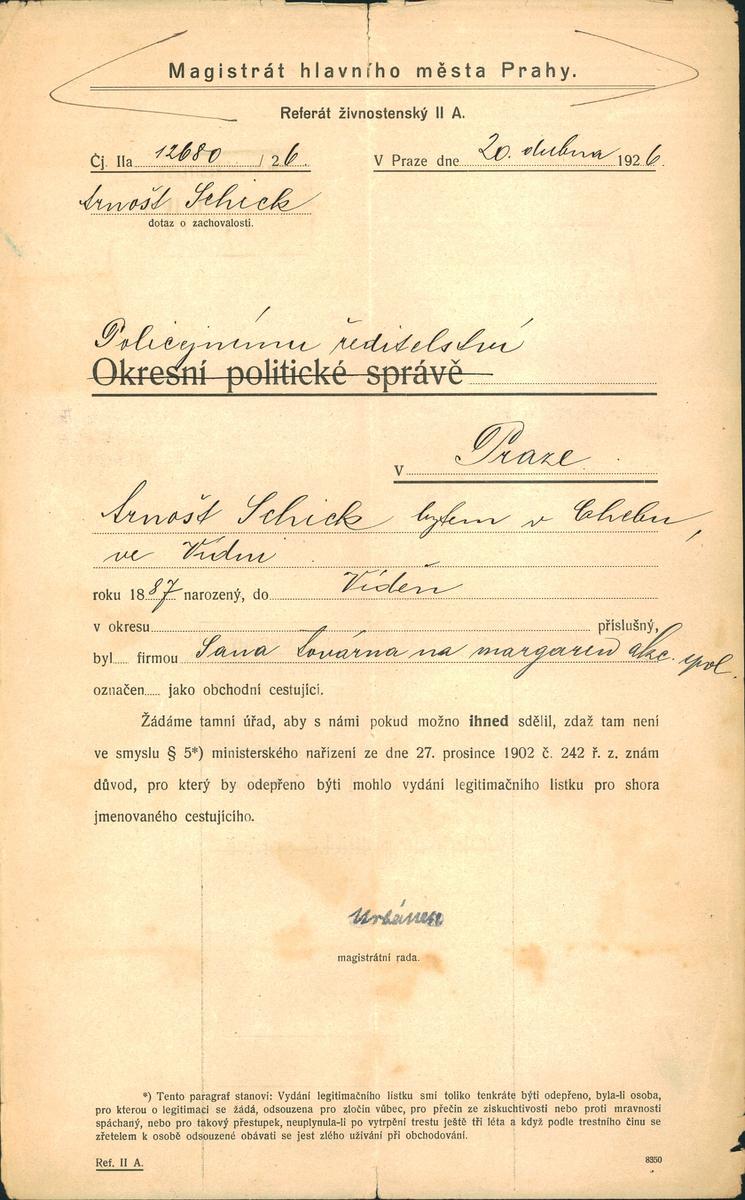 Magistrát hlavního města Prahy.
Referát živnostenský II A.
Čj. IIa 12680 / 26.
V Praze dne 20. dubna 1926.
Arnošt Schick
dotaz o zachovalosti.
Policejnímu ředitelství
Okresní politické správě
v Praze.
Arnošt Schick bytem v Chebu,
ve Vídni
roku 1887 narozený, do Vídeň
v okresu příslušný,
byl firmou Sana továrna na margarin akc. spol.
označen jako obchodní cestující.
Žádáme tamní úřad, aby s námi pokud možno ihned sdělil, zdaž tam není
ve smyslu § 5*) ministerského nařízení ze dne 27. prosince 1902 č. 242 ř. z. znám
důvod, pro který by odepřeno býti mohlo vydání legitimačního lístku pro shora
jmenovaného cestujícího.
Urbánek
magistrátní rada.
*) Tento paragraf stanoví: Vydání legitimačního lístku smí toliko tenkráte býti odepřeno, byla-li osoba,
pro kterou o legitimaci se žádá, odsouzena pro zločin vůbec, pro přečin ze ziskuchtivosti nebo proti mravnosti
spáchaný, nebo pro takový přestupek, neuplynula-li po vytrpění trestu ještě tři léta a když podle trestního činu se
zřetelem k osobě odsouzené obávati se jest zlého užívání při obchodování.
Ref. II A.
8350